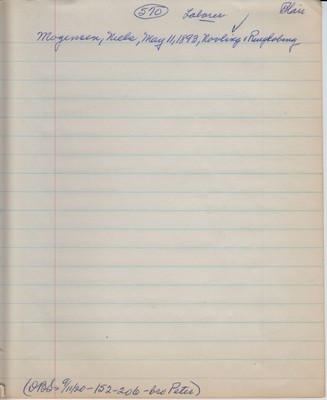 570 Laborer Blair
Mogensen, Niels, May 11, 1893, Novling, Ringkobing
(OBS= 9/11/20-152-206-bro Peter)